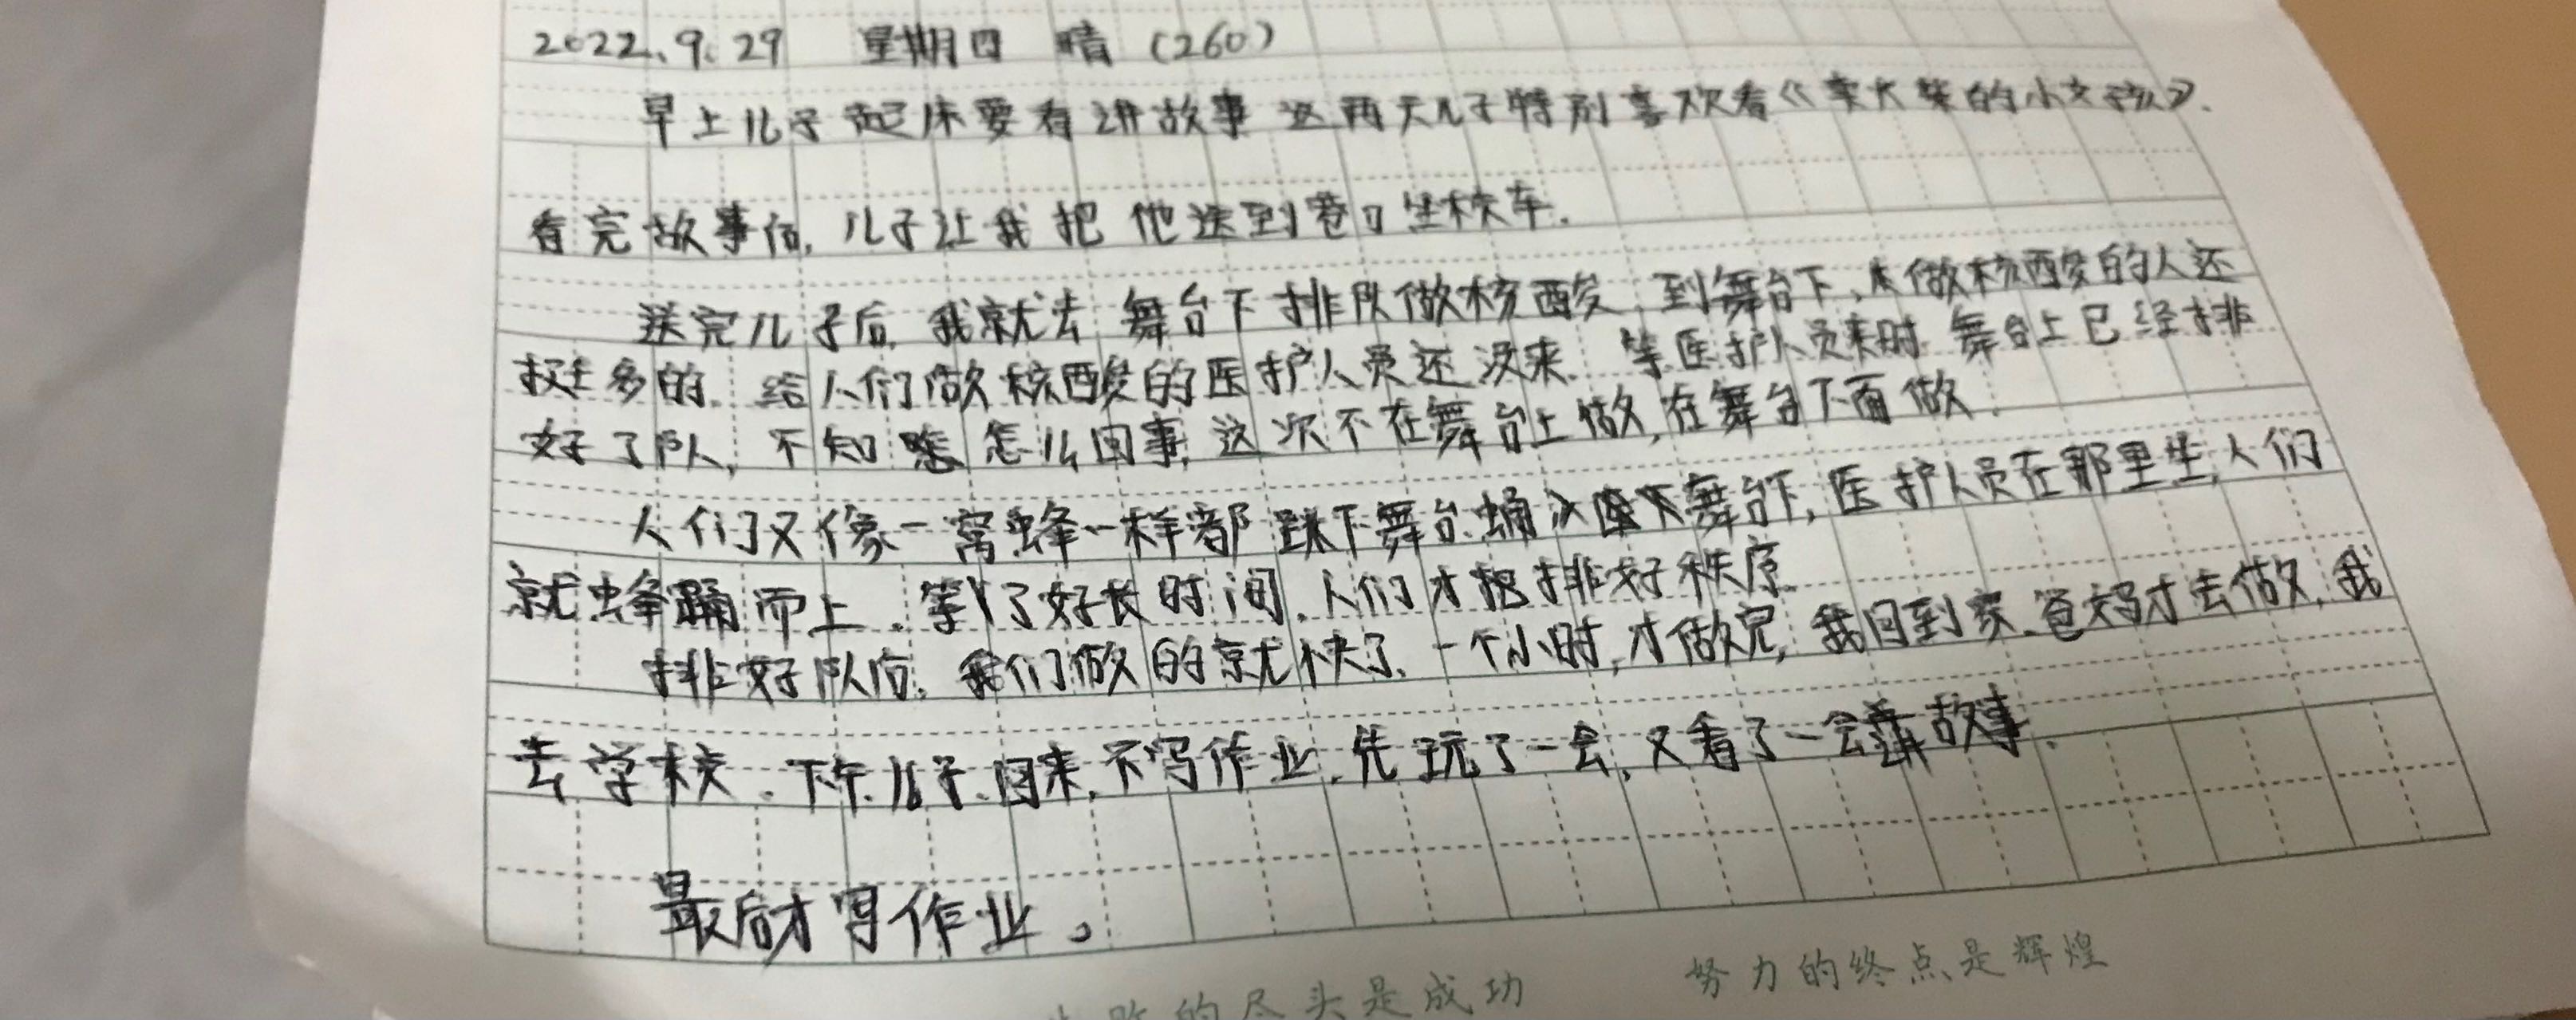 2022.9.29 星期四 晴（260）
早上儿子起床要看讲故事 这两天儿子特别喜欢看《卖火柴的小女孩》.
看完故事后,儿子让我把他送到巷口坐校车.
送完儿子后,我就去舞台下排队做核酸,到舞台下,来做核酸的人还
挺多的.给人们做核酸的医护人员还没来.等医护人员来时 舞台上已经排
好了队,不知 怎么回事,这次不在舞台上做,在舞台下面做.
人们又像一窝蜂一样都跳下舞台.涌入舞台下,医护人员在那里坐,人们
就蜂踊而上.等了好长时间,人们才把排好秩序.
排好队后,我们做的就快了.一个小时,才做完,我回到家.爸妈才去做,我
去学校.下午儿子回来,不写作业,先玩了一会,又看了一会讲故事.
最后才写作业。
败的尽头是成功 努力的终点是辉煌